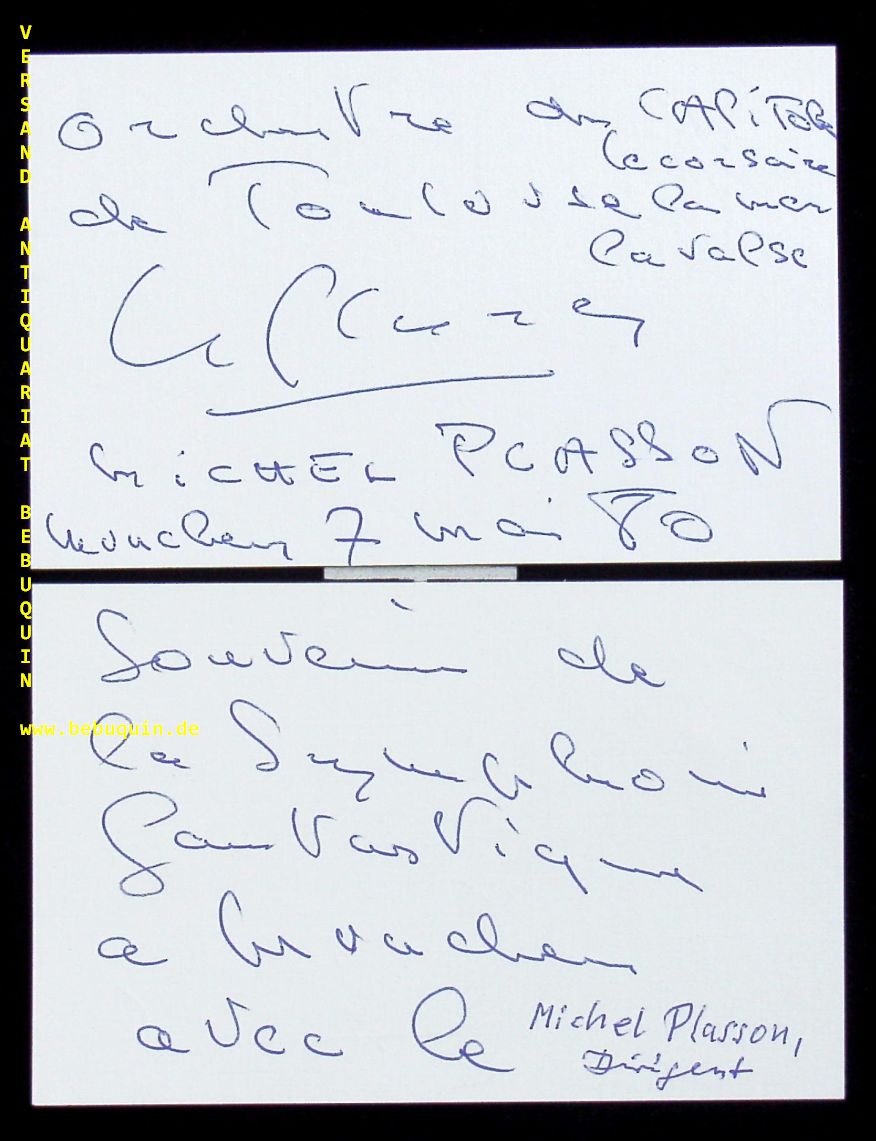 VERSAND ANTIQUARIAT BEBUQUIN
www.bebuquin.de
Souvenir de
la Symphonie
fantastique
a Munchen
avec le
Orchestre du CAPiTole
de Toulouse
le corsaire
la mer
la valse
MiCHEL PLASSON
Munchen 7 mai 80
Michel Plasson,
Dirigent